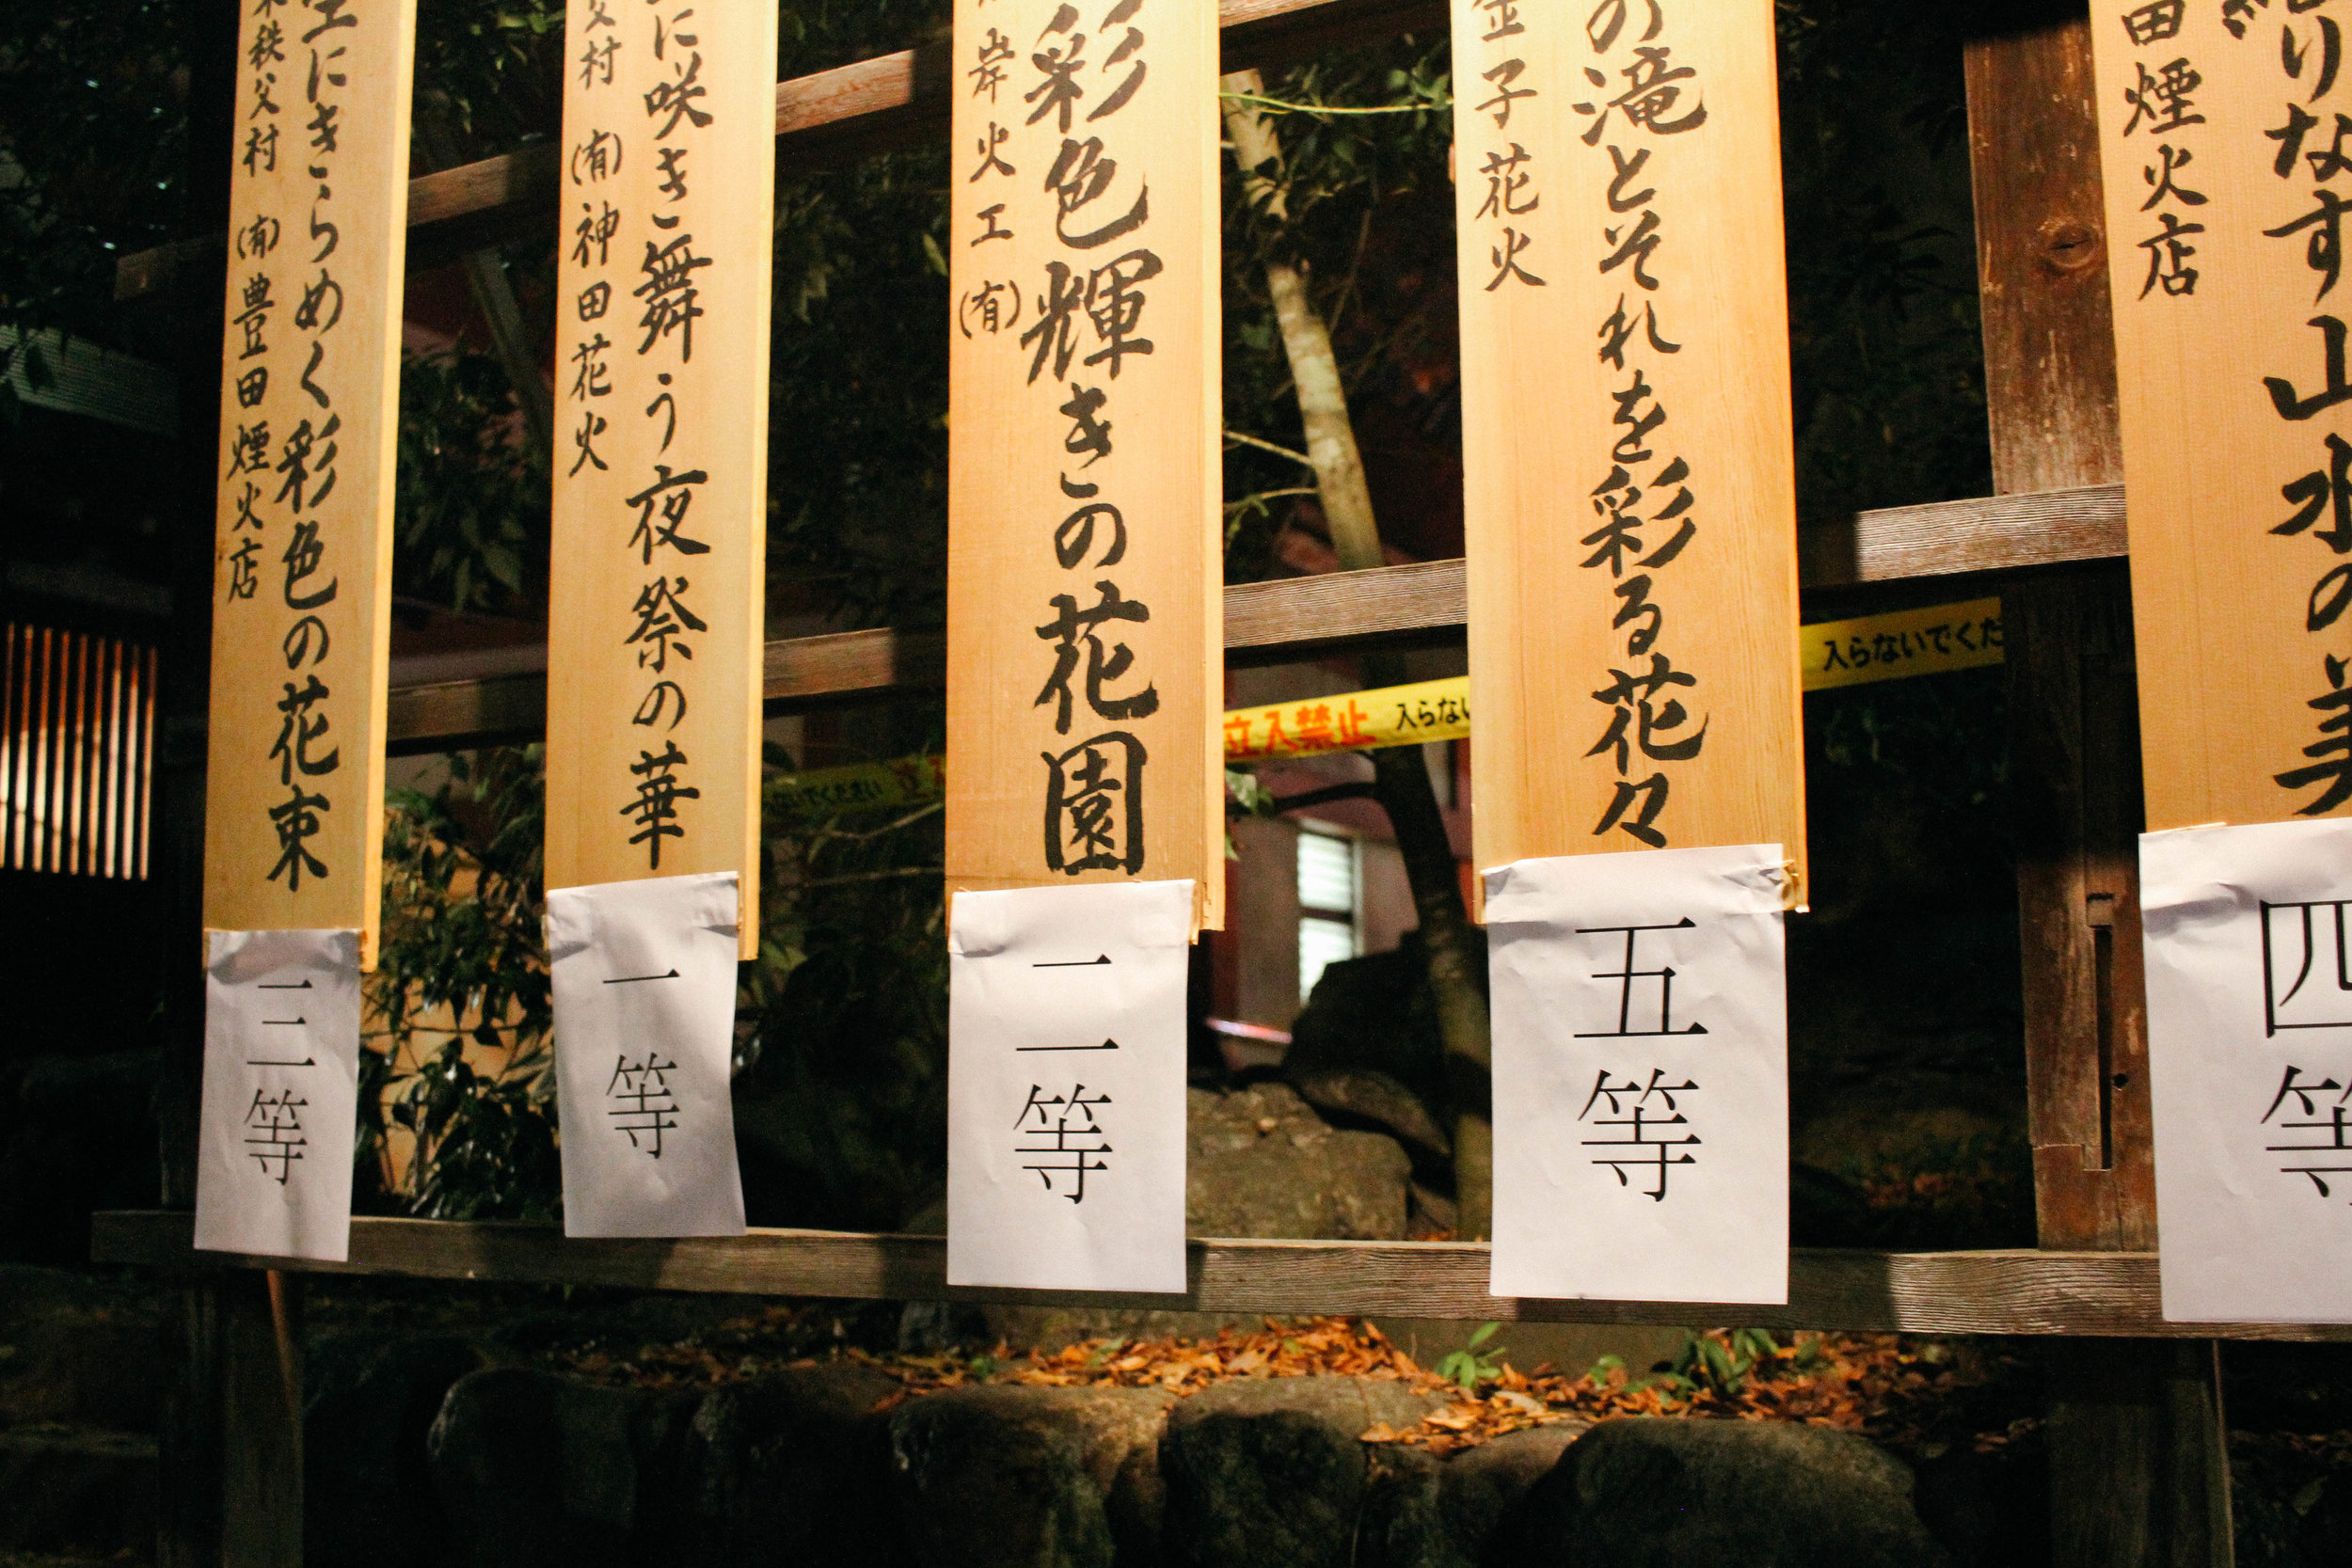 空にきらめく彩色の花束
秩父村 (有)豊田煙火店
三等
に咲き舞う夜祭の華
父村 (有)神田花火
一等
彩色輝きの花園
岸火工(有)
二等
の滝とそれを彩る花々
金子花火
五等
りなす山水の美
田煙火店
四等
ないでください 立
立入禁止 入らない
入らないでくだ